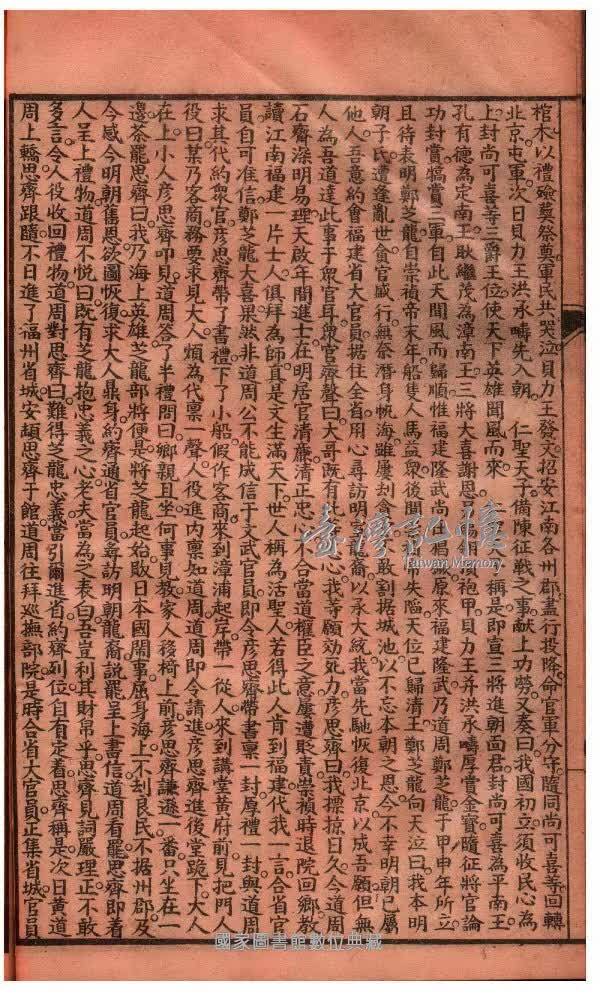 棺木以禮殮奠祭奠軍民共哭泣貝力王發文招安江南各州郡盡行投降命官軍分守隨同尚可喜等回轉
北京屯軍次日貝力王洪承疇先入朝 仁聖天子備陳征戰之事獻上功勞又奏曰我國初立須收民心為
上封尚可喜等三爵王位使天下英雄聞風而來 天 稱是即宣三將進朝面君封尚可喜為平南王
孔有德為定南王耿繼茂為漳南王三將大喜謝恩 賜 袍甲貝力王并洪承疇厚賞金寶隨征將官論
功封賞犒賞三軍自此天聞風而歸順惟福建隆武尚 滅原來福建隆武乃道周鄭芝龍于甲申年所立
且待表明鄭芝龍自崇禎帝末年船隻人馬益眾後聞 帝失陷天位已歸清王鄭芝龍向天泣曰我本明
朝子民遭逢亂世貪官盛行無奈潛身帆海雖屢刦貪 敢割据城池以不忘本朝之恩今不幸明朝已屬
他人吾意約會福建省大官員据住全省用心尋訪明 裔以承大統我當先馳恢復北京以成吾願但無
人為吾道達此事于眾官耳眾官齊聲曰大哥既有此 心我等願効死力彥思齊曰我摽掠日久今道周
石齋深明易理天啟年間進士在明居官清廉清正忠心不合當道權臣之意屢遭貶責崇禎時退院回鄉教
讀江南福建一片士人俱拜為師真是文生滿天下世人稱為活聖人若得此人肯到福建代我一言合省官
員自可准信鄭芝龍大喜果然非道周公不能成信于文武官員即令彥思齊帶書稟一封厚禮一封與道周
求其代約眾官彥思齊帶了書禮下了小船假作客商來到漳浦起岸帶一從人來到講堂黃府前見把門人
役曰某乃客商務要求見大人煩為代稟一聲人役進內稟知道周道周即令請進彥思齊進後堂跪下大人
在上小人彥思齊叩見道周答了半禮問曰鄉親且坐何事見教家人移椅上前彥思齊謙遜一番只坐在一
邊茶罷思齊曰我乃海上英雄芝龍部將便是將芝龍起始敗日本國鬧事屈身海上不刦良民不据州郡及
今感今明朝舊恩欲圖恢復求大人鼎身約齊通省官員尋訪明朝龍裔說罷呈上書信道周看罷思齊即着
人呈上禮物道周不悅曰既有芝龍抱忠義之心老夫當為之表白吾豈利其財帛乎思齊見詞嚴理正不敢
多言令人役收回禮物道周對思齊曰難得芝龍忠義當引爾進省約齊列位自有定着思齊稱是次日黃道
周上轎思齊跟隨不日進了福州省城安頓思齊于館道周往拜巡撫部院是時合省大官員正集省城官員
臺灣記憶
Taiwan Memory
國家圖書館數位典藏